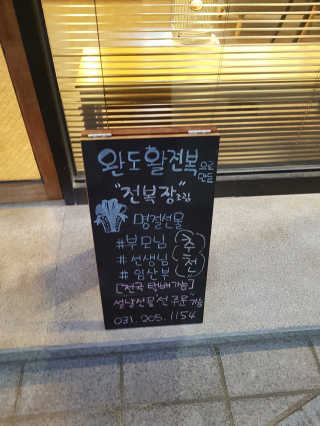 완도활전복으로 만든
"전복장"조림
명절선물
#부모님
#선생님
#임산부
추천
[전국 택배가능]
설날선물 선 주문 가능
031. 205. 1154